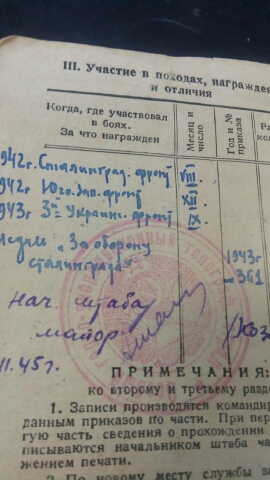 III. Участие в походах, награжден
и отличия
Когда, где участвовал
в боях.
За что награжден
Месяц и
число
Год и №
приказа
942г. Сталинград. фронт VIII
942г Юго. Зап. фронт XII
943г 3й Украин. фронт IX.
Медаль „За оборону
Сталинграда" 1943г
361
Нач. штаба
майор /Коз
11.45г.
ПРИМЕЧАНИЯ:
ко второму и третьему разде
1. Записи производятся командир
данным приказов по части. При пер
гую часть сведения о прохождении
писываются начальником штаба ча
жением печати.
2. По новому месту службы за